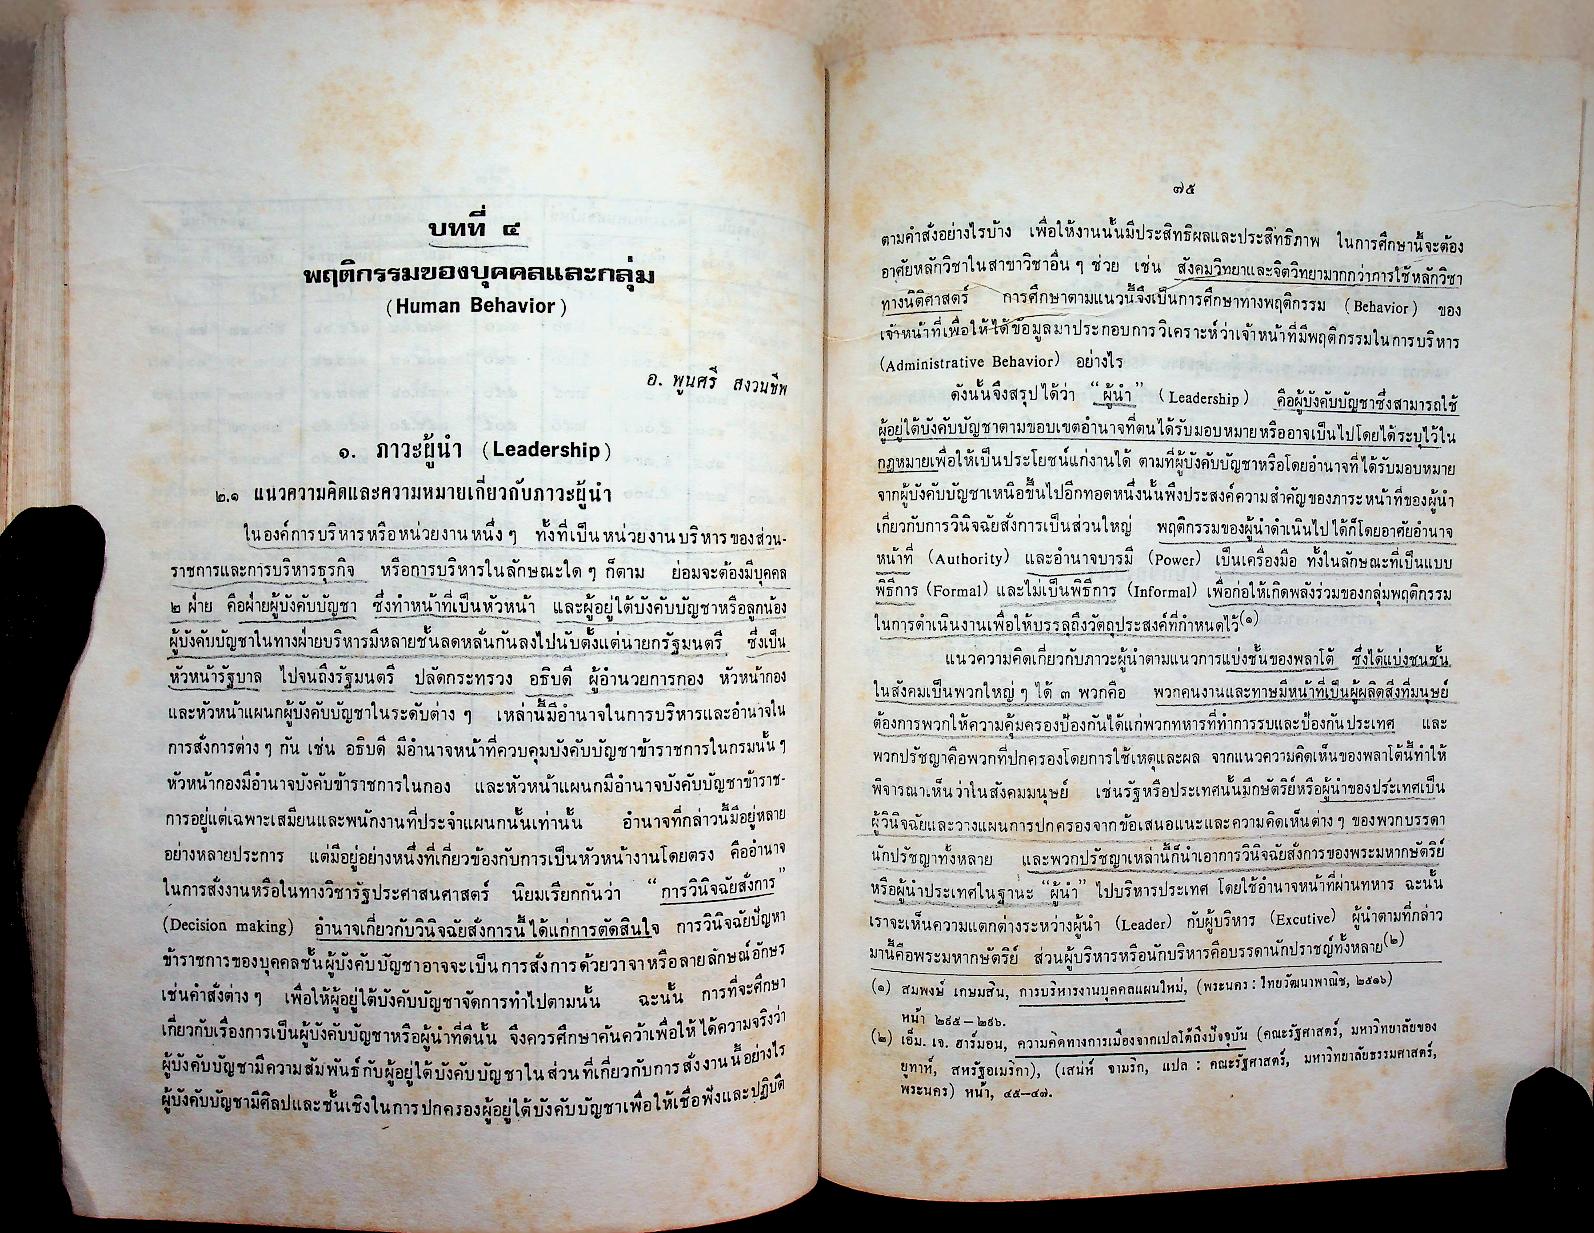 บทที่ ๔
พฤติกรรมของบุคคลและกลุ่ม
(Human Behavior)
อ. พูนศรี สงวนชีพ
๑. ภาวะผู้นำ (Leadership)
๒.๑ แนวความคิดและความหมายเกี่ยวกับภาวะผู้นำ
ในองค์การบริหารหรือหน่วยงานหนึ่ง ๆ ทั้งที่เป็นหน่วยงานบริหารของส่วน-
ราชการและการบริหารธุรกิจ หรือการบริหารในลักษณะใด ๆ ก็ตาม ย่อมจะต้องมีบุคคล
๒ ฝ่าย คือฝ่ายผู้บังคับบัญชา ซึ่งทำหน้าที่เป็นหัวหน้า และผู้อยู่ใต้บังคับบัญชาหรือลูกน้อง
ผู้บังคับบัญชาในทางฝ่ายบริหารมีหลายชั้นลดหลั่นกันลงไปนับตั้งแต่นายกรัฐมนตรี ซึ่งเป็น
หัวหน้ารัฐบาล ไปจนถึงรัฐมนตรี ปลัดกระทรวง อธิบดี ผู้อำนวยการกอง หัวหน้ากอง
และหัวหน้าแผนกผู้บังคับบัญชาในระดับต่าง ๆ เหล่านี้มีอำนาจในการบริหารและอำนาจใน
การสั่งการต่าง ๆ กัน เช่น อธิบดี มีอำนาจหน้าที่ควบคุมบังคับบัญชาข้าราชการในกรมนั้น ๆ
หัวหน้ากองมีอำนาจบังคับข้าราชการในกอง และหัวหน้าแผนกมีอำนาจบังคับบัญชาข้าราช-
การอยู่แต่เฉพาะเสมียนและพนักงานที่ประจำแผนกนั้นเท่านั้น อำนาจที่กล่าวนี้มีอยู่หลาย
อย่างหลายประการ แต่มีอยู่อย่างหนึ่งที่เกี่ยวข้องกับการเป็นหัวหน้างานโดยตรง คืออำนาจ
ในการสั่งงานหรือในทางวิชารัฐประศาสนศาสตร์ นิยมเรียกกันว่า “การวินิจฉัยสั่งการ”
(Decision making) อำนาจเกี่ยวกับวินิจฉัยสั่งการนี้ได้แก่การตัดสินใจ การวินิจฉัยปัญหา
ข้าราชการของบุคคลชั้นผู้บังคับบัญชาอาจจะเป็นการสั่งการด้วยวาจาหรือลายลักษณ์อักษร
เช่นคำสั่งต่าง ๆ เพื่อให้ผู้อยู่ใต้บังคับบัญชาจัดการทำไปตามนั้น ฉะนั้น การที่จะศึกษา
เกี่ยวกับเรื่องการเป็นผู้บังคับบัญชาหรือผู้นำที่ดีนั้น จึงควรศึกษาค้นคว้าเพื่อให้ได้ความจริงว่า
ผู้บังคับบัญชามีความสัมพันธ์กับผู้อยู่ใต้บังคับบัญชาในส่วนที่เกี่ยวกับการสั่งงานนี้อย่างไร
ผู้บังคับบัญชามีศิลปและชั้นเชิงในการปกครองผู้อยู่ใต้บังคับบัญชาเพื่อให้เชื่อฟังและปฏิบัติ
๗๕
ตามคำสั่งอย่างไรบ้าง เพื่อให้งานนั้นมีประสิทธิผลและประสิทธิภาพ ในการศึกษานี้จะต้อง
อาศัยหลักวิชาในสาขาวิชาอื่น ๆ ช่วย เช่น สังคมวิทยาและจิตวิทยามากกว่าการใช้หลักวิชา
ทางนิติศาสตร์ การศึกษาตามแนวนี้จึงเป็นการศึกษาทางพฤติกรรม (Behavior) ของ
เจ้าหน้าที่เพื่อให้ได้ข้อมูลมาประกอบการวิเคราะห์ว่าเจ้าหน้าที่มีพฤติกรรมในการบริหาร
(Administrative Behavior) อย่างไร
ดังนั้นจึงสรุปได้ว่า “ผู้นำ” (Leadership) คือผู้บังคับบัญชาซึ่งสามารถใช้
ผู้อยู่ใต้บังคับบัญชาตามขอบเขตอำนาจที่ตนได้รับมอบหมายหรืออาจเป็นไปโดยได้ระบุไว้ใน
กฎหมายเพื่อให้เป็นประโยชน์แก่งานได้ ตามที่ผู้บังคับบัญชาหรือโดยอำนาจที่ได้รับมอบหมาย
จากผู้บังคับบัญชาเหนือขึ้นไปอีกทอดหนึ่งนั้นพึงประสงค์ความสำคัญของภาระหน้าที่ของผู้นำ
เกี่ยวกับการวินิจฉัยสั่งการเป็นส่วนใหญ่ พฤติกรรมของผู้นำดำเนินไปได้ก็โดยอาศัยอำนาจ
หน้าที่ (Authority) และอำนาจบารมี (Power) เป็นเครื่องมือ ทั้งในลักษณะที่เป็นแบบ
พิธีการ (Formal) และไม่เป็นพิธีการ (Informal) เพื่อก่อให้เกิดพลังร่วมของกลุ่มพฤติกรรม
ในการดำเนินงานเพื่อให้บรรลุถึงวัตถุประสงค์ที่กำหนดไว้(๑)
แนวความคิดเกี่ยวกับภาวะผู้นำตามแนวการแบ่งชั้นของพลาโต้ ซึ่งได้แบ่งชนชั้น
ในสังคมเป็นพวกใหญ่ ๆ ได้ ๓ พวกคือ พวกคนงานและทาษมีหน้าที่เป็นผู้ผลิตสิ่งที่มนุษย์
ต้องการพวกให้ความคุ้มครองป้องกันได้แก่พวกทหารที่ทำการรบและป้องกันประเทศ และ
พวกปรัชญาคือพวกที่ปกครองโดยการใช้เหตุและผล จากแนวความคิดเห็นของพลาโต้นี้ทำให้
พิจารณาเห็นว่าในสังคมมนุษย์ เช่นรัฐหรือประเทศนั้นมีกษัตริย์หรือผู้นำของประเทศเป็น
ผู้วินิจฉัยและวางแผนการปกครองจากข้อเสนอแนะและความคิดเห็นต่าง ๆ ของพวกบรรดา
นักปรัชญาทั้งหลาย และพวกปรัชญาเหล่านี้ก็นำเอาการวินิจฉัยสั่งการของพระมหากษัตริย์
หรือผู้นำประเทศในฐานะ “ผู้นำ” ไปบริหารประเทศ โดยใช้อำนาจหน้าที่ผ่านทหาร ฉะนั้น
เราจะเห็นความแตกต่างระหว่างผู้นำ (Leader) กับผู้บริหาร (Excutive) ผู้นำตามที่กล่าว
มานี้คือพระมหากษัตริย์ ส่วนผู้บริหารหรือนักบริหารคือบรรดานักปราชญ์ทั้งหลาย(๒)
(๑) สมพงษ์ เกษมสิน, การบริหารงานบุคคลแผนใหม่, (พระนคร : ไทยวัฒนาพาณิช, ๒๕๑๖)
หน้า ๒๘๕–๒๘๖.
(๒) เอ็ม. เจ. ฮาร์มอน, ความคิดทางการเมืองจากเปลโต้ถึงปัจจุบัน (คณะรัฐศาสตร์, มหาวิทยาลัยของ
ยูทาห์, สหรัฐอเมริกา), (เสน่ห์ จามริก, แปล : คณะรัฐศาสตร์, มหาวิทยาลัยธรรมศาสตร์,
พระนคร) หน้า, ๔๕–๔๗.